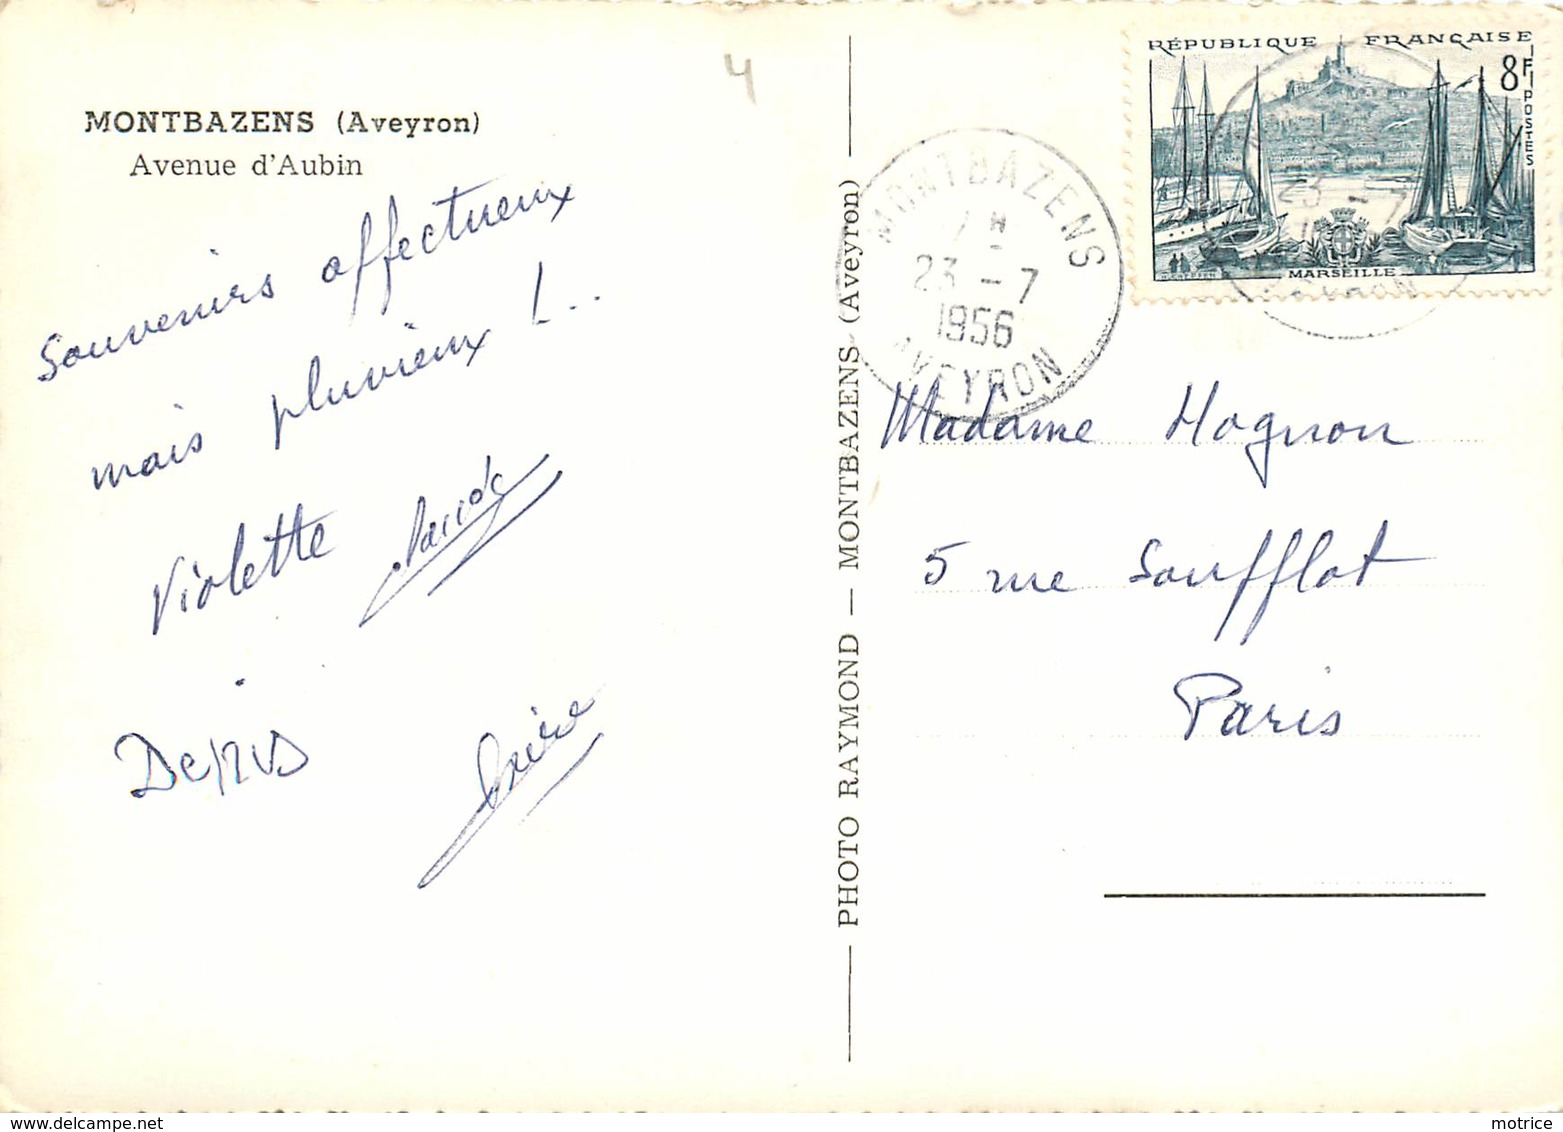 4
MONTBAZENS (Aveyron)
Avenue d'Aubin
Souvenirs affectueux
mais pluvieux !..
Violette Claude
Denis
PHOTO RAYMOND — MONTBAZENS (Aveyron)
MONTBAZENS
23 - 7
1956
AVEYRON
RÉPUBLIQUE FRANÇAISE
8F
POSTES
23 - 7
MARSEILLE
Madame Hognon
5 rue Soufflot
Paris
www.delcampe.net
motrice